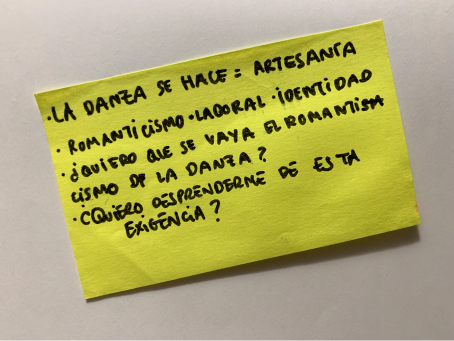 ·LA DANZA SE HACE = ARTESANÍA
· ROMANTICISMO · LABORAL · IDENTIDAD
· ¿QUIERO QUE SE VAYA EL ROMANTISM
CISMO DE LA DANZA?
· ¿QUIERO DESPRENDERME DE ESTA
EXIGENCIA?